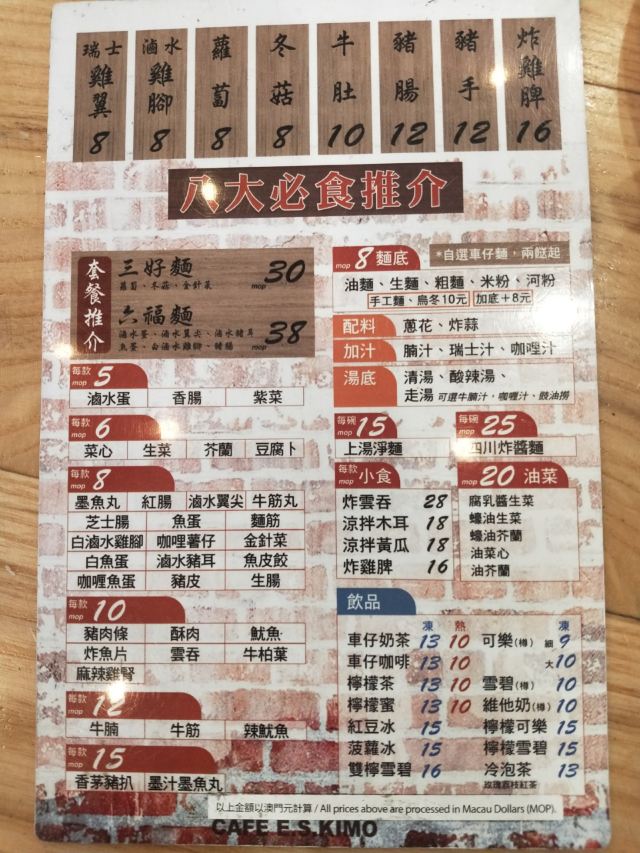 瑞士雞翼 8
滷水雞腳 8
蘿蔔 8
冬菇 8
牛肚 10
豬腸 12
豬手 12
炸雞髀 16
八大必食推介
套餐推介
三好麵 mop 30
蘿蔔、冬菇、金針菜
六福麵 mop 38
滷水蛋、滷水翼尖、滷水豬耳
魚蛋、白滷水雞腳、豬腸
每款 mop 5
滷水蛋 香腸 紫菜
每款 mop 6
菜心 生菜 芥蘭 豆腐卜
每款 mop 8
墨魚丸 紅腸 滷水翼尖 牛筋丸
芝士腸 魚蛋 麵筋
白滷水雞腳 咖喱薯仔 金針菜
白魚蛋 滷水豬耳 魚皮餃
咖喱魚蛋 豬皮 生腸
每款 mop 10
豬肉條 酥肉 魷魚
炸魚片 雲吞 牛柏葉
麻辣雞腎
每款 mop 12
牛腩 牛筋 辣魷魚
每款 mop 15
香茅豬扒 墨汁墨魚丸
mop 8 麵底 *自選車仔麵，兩餸起
油麵、生麵、粗麵、米粉、河粉
手工麵、烏冬10元 加底+8元
配料 蔥花、炸蒜
加汁 腩汁、瑞士汁、咖喱汁
湯底 清湯、酸辣湯、
走湯 可選牛腩汁，咖喱汁、豉油撈
每碗 mop 15
上湯淨麵
每碗 mop 25
四川炸醬麵
每款 mop 小食
炸雲吞 28
涼拌木耳 18
涼拌黃瓜 18
炸雞髀 16
mop 20 油菜
腐乳醬生菜
蠔油生菜
蠔油芥蘭
油菜心
油芥蘭
飲品
凍 熱 凍
車仔奶茶 13 10 可樂(樽) 細 9
車仔咖啡 13 10 大 10
檸檬茶 13 10 雪碧(樽) 10
檸檬蜜 13 10 維他奶(樽) 10
紅豆冰 15 檸檬可樂 15
菠蘿冰 15 檸檬雪碧 15
雙檸雪碧 16 冷泡茶 13
玫瑰荔枝紅茶
以上金額以澳門元計算 / All prices above are processed in Macau Dollars (MOP).
CAFE E S.KIMO